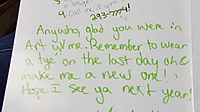 4 call
293-7774!
Anywho, glad you were in
Art w/ me. Remember to wear
a tye on the last day oh &
make me a new one!
Hope I see ya next year!